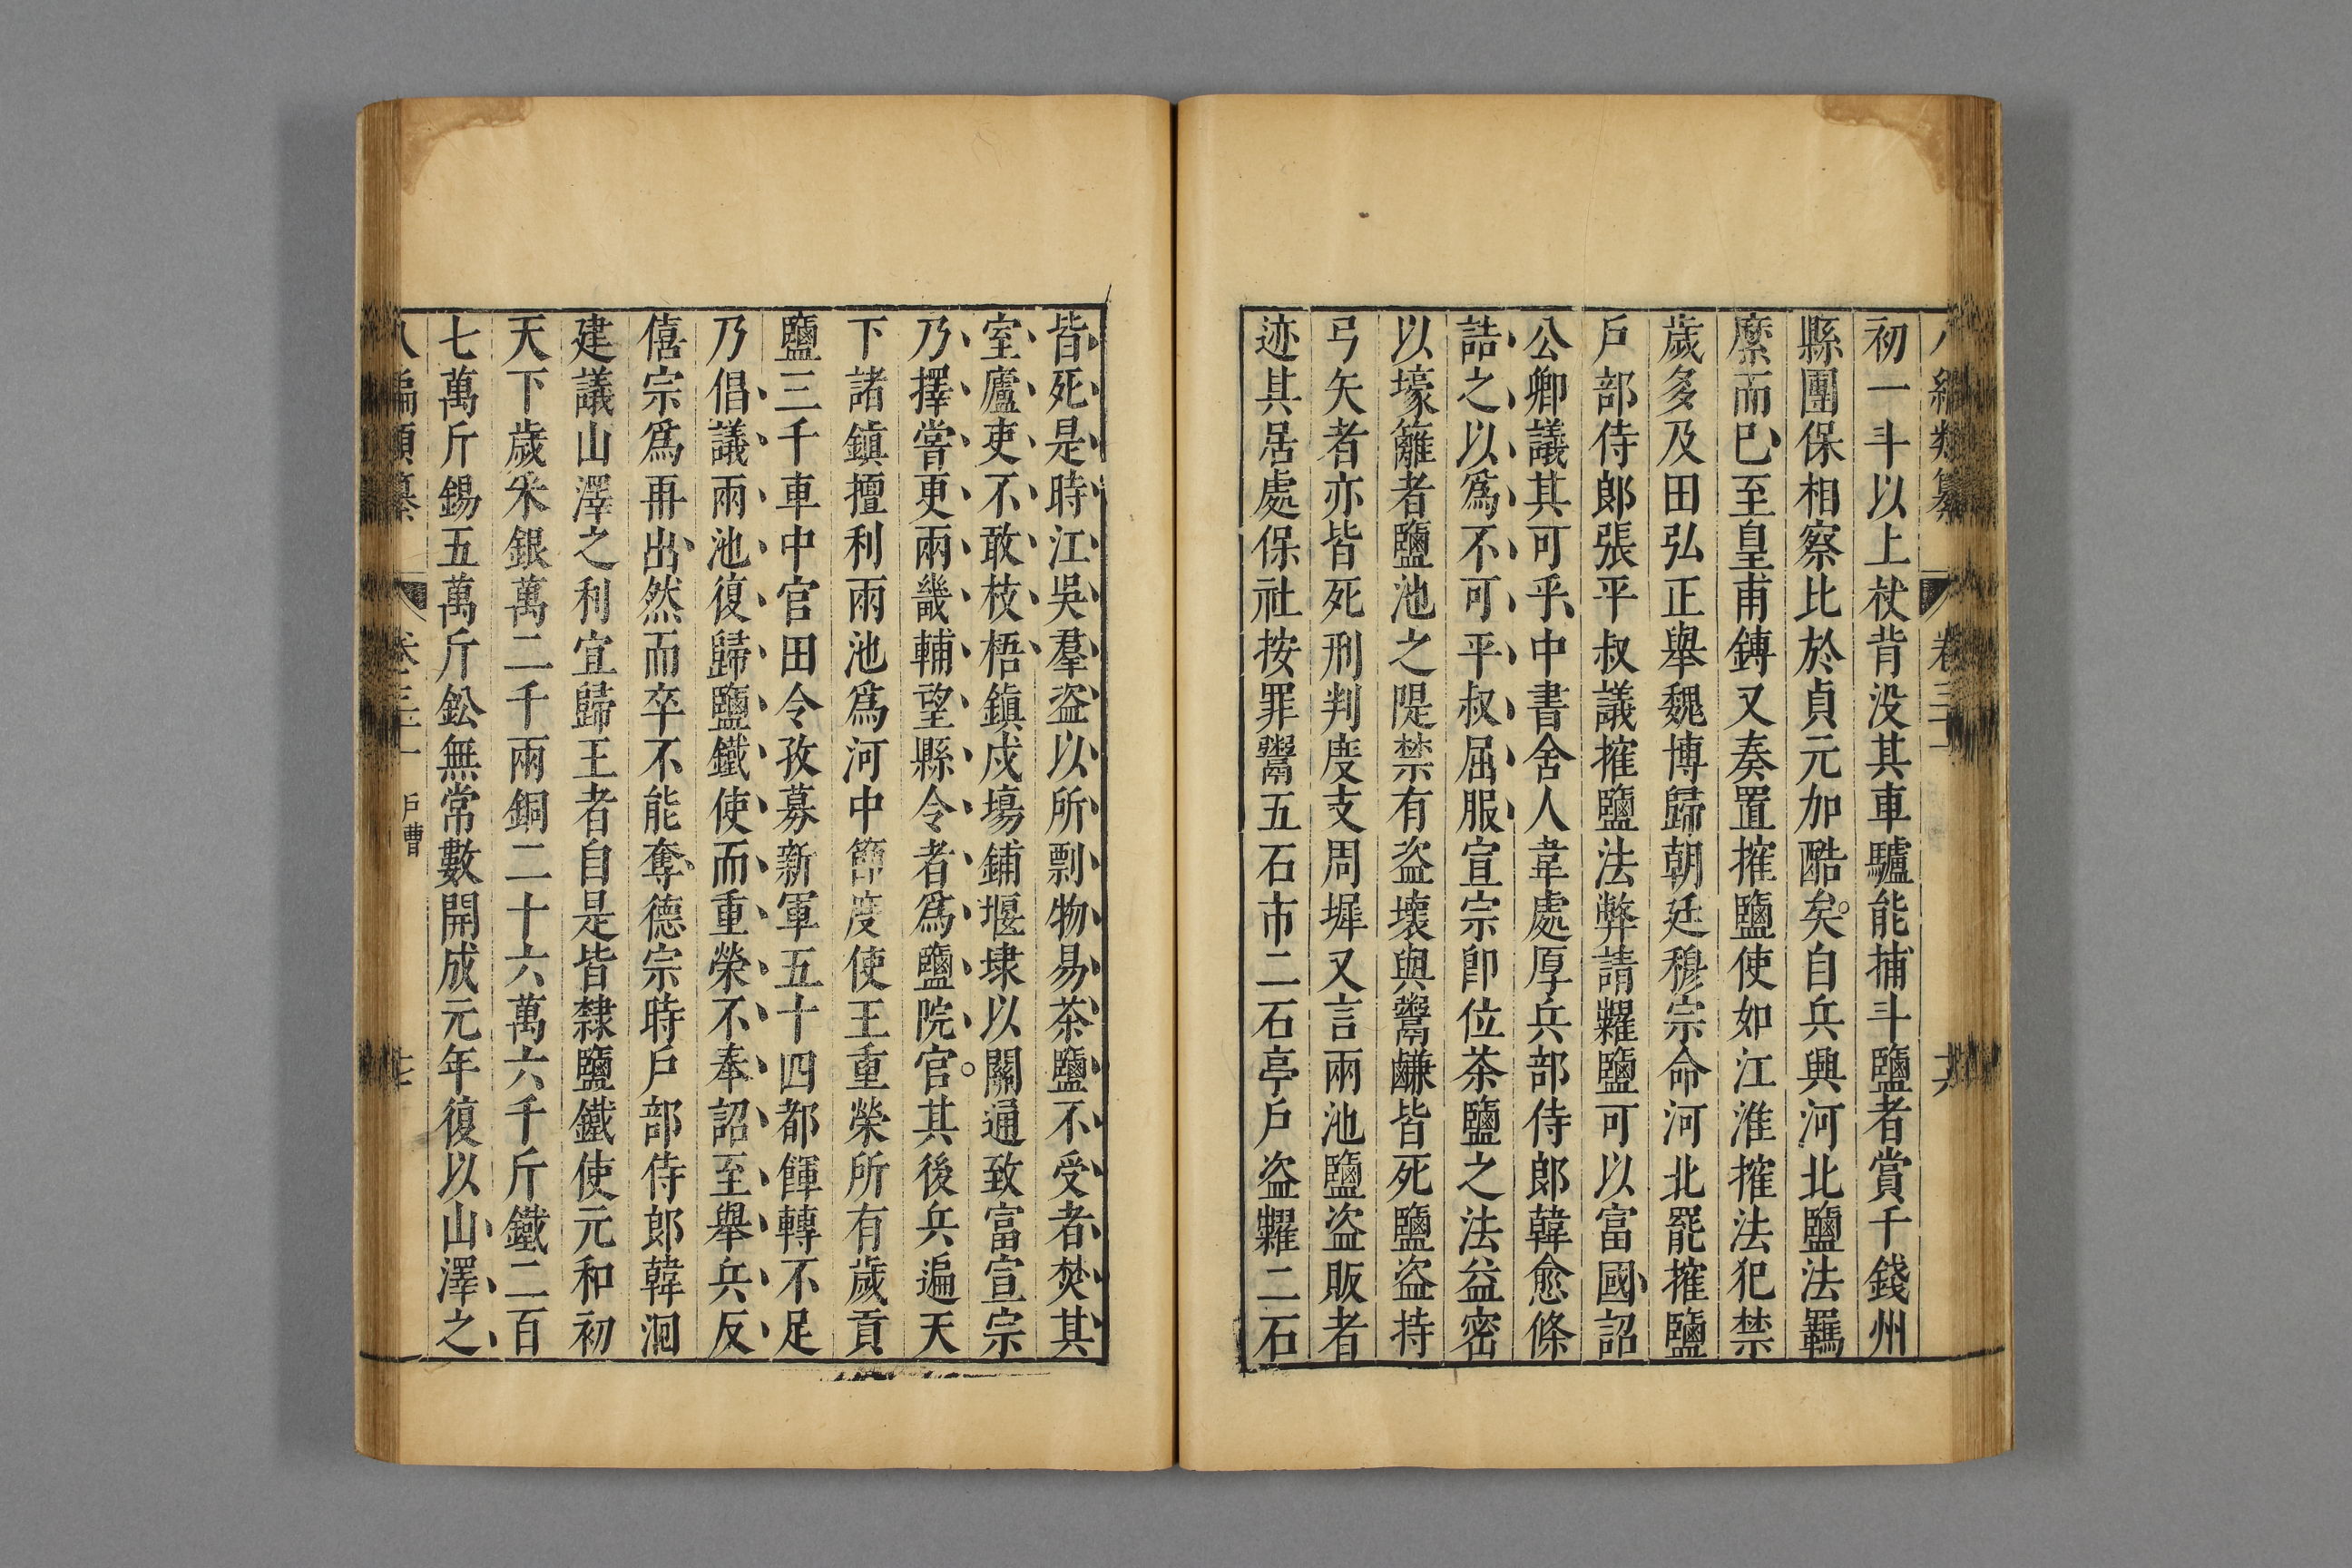 初一斗以上杖背没其車驢能捕斗鹽者賞千錢州
縣團保相察比於貞元加酷矣自兵興河北鹽法羈
縻而巳至皇甫鎛又奏置搉鹽使如江淮搉法犯禁
歲多及田弘正舉魏博歸朝廷穆宗命河北罷搉鹽
戶部侍郎張平叔議搉鹽法弊請糶鹽可以富國詔
公卿議其可乎中書舍人韋處厚兵部侍郎韓愈條
詰之以爲不可平叔屈服宣宗卽位茶鹽之法益密
以壕籬者鹽池之隄禁有盜壞與鬻鹻皆死鹽盜持
弓矢者亦皆死刑判度支周墀又言兩池鹽盜販者
迹其居處保社按罪鬻五石市二石亭戶盜糶二石
皆死是時江吳羣盜以所剽物易茶鹽不受者焚其
室廬吏不敢枝梧鎮戍塲鋪堰埭以關通致富宣宗
乃擇嘗更兩畿輔望縣令者爲鹽院官其後兵遍天
下諸鎮擅利兩池爲河中節度使王重榮所有歲貢
鹽三千車中官田令孜募新軍五十四都餫轉不足
乃倡議兩池復歸鹽鐵使而重榮不奉詔至舉兵反
僖宗爲再出然而卒不能奪德宗時戶部侍郎韓洄
建議山澤之利宜歸王者自是皆隸鹽鐵使元和初
天下歲采銀萬二千兩銅二十六萬六千斤鐵二百
七萬斤錫五萬斤鈆無常數開成元年復以山澤之
八編類纂 卷三十一 戶曹